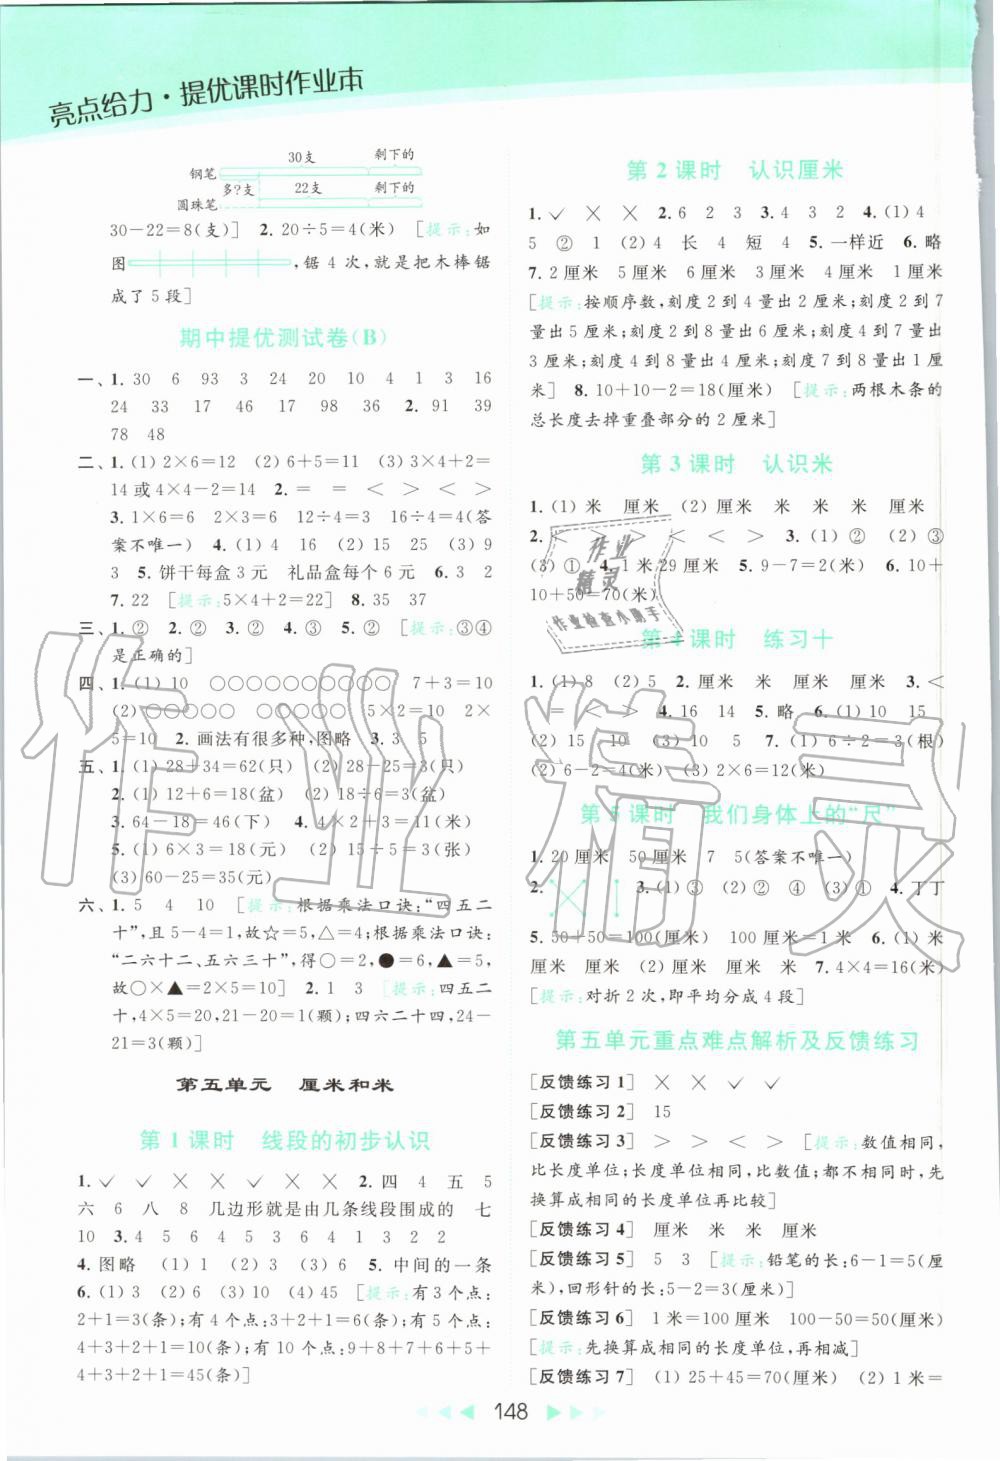 亮点给力·提优课时作业本
30支 剩下的
钢笔
多?支 22支 剩下的
圆珠笔
30-22=8(支)] 2. 20÷5=4(米) [提示:如
图 ,锯 4 次,就是把木棒锯
成了 5 段]
期中提优测试卷(B)
一、1. 30 6 93 3 24 20 10 4 1 3 16
24 33 17 46 17 98 36 2. 91 39
78 48
二、1. (1) 2×6=12 (2) 6+5=11 (3) 3×4+2=
14或4×4-2=14 2. = = < > < >
3. 1×6=6 2×3=6 12÷4=3 16÷4=4(答
案不唯一) 4. (1) 4 16 (2) 15 25 (3) 9
3 5. 饼干每盒 3 元 礼品盒每个 6 元 6. 3 2
7. 22 [提示:5×4+2=22] 8. 35 37
三、1. ② 2. ② 3. ② 4. ③ 5. ② [提示:③④
是正确的]
四、1. (1) 10 ○○○○○○○○○○ 7+3=10
(2) ○○○○○ ○○○○○ 5×2=10 2×
5=10 2. 画法有很多种,图略 3. 3 5
五、1. (1) 28+34=62(只) (2) 28-25=3(只)
2. (1) 12+6=18(盆) (2) 18÷6=3(盆)
3. 64-18=46(下) 4. 4×2+3=11(米)
5. (1) 3×6=18(元) (2) 15÷5=3(张)
(3) 60-25=35(元)
六、1. 5 4 10 [提示:根据乘法口诀:“四五二
十”,且 5-4=1,故☆=5,△=4;根据乘法口诀:
“二六十二、五六三十”,得○=2,●=6,▲=5,
故○×▲=2×5=10] 2. 1 3 [提示:四五二
十,4×5=20,21-20=1(颗);四六二十四,24-
21=3(颗)]
第五单元 厘米和米
第 1 课时 线段的初步认识
1. ✓ ✓ × × ✓ × 2. 四 4 五 5
六 6 八 8 几边形就是由几条线段围成的 七
10 3. 4 5 6 4 5 3 6 4 1 3 2 2
4. 图略 (1) 1 (2) 3 (3) 6 5. 中间的一条
6. (1) 3 (2) 6 (3) 10 (4) 45 [提示:有 3 个点:
2+1=3(条);有 4 个点:3+2+1=6(条);有 5 个点:
4+3+2+1=10(条);有 10 个点:9+8+7+6+5+
4+3+2+1=45(条)]
第 2 课时 认识厘米
1. ✓ × × 2. 6 2 3 3. 4 3 2 4. (1) 4
5 ② 1 (2) 4 长 4 短 4 5. 一样近 6. 略
7. 2 厘米 5 厘米 6 厘米 3 厘米 4 厘米 1 厘米
[提示:按顺序数,刻度 2 到 4 量出 2 厘米;刻度 2 到 7
量出 5 厘米;刻度 2 到 8 量出 6 厘米;刻度 4 到 7 量出
3 厘米;刻度 4 到 8 量出 4 厘米;刻度 7 到 8 量出 1 厘
米] 8. 10+10-2=18(厘米) [提示:两根木条的
总长度去掉重叠部分的 2 厘米]
第 3 课时 认识米
1. (1) 米 厘米 (2) 厘米 米 米 米 厘米
2. < > > > < < > 3. (1) ② (2) ③
(3) ① 4. 1 米 29 厘米 5. 9-7=2(米) 6. 10+
10+50=70(米)
第 4 课时 练习十
1. (1) 8 (2) 5 2. 厘米 米 厘米 厘米 3. <
= > < > 4. 16 14 5. 略 6. (1) 10 15
(2) 15 10 (3) 10 5 7. (1) 6÷2=3(根)
(2) 6-2=4(米) (3) 2×6=12(米)
第 5 课时 我们身体上的“尺”
1. 20 厘米 50 厘米 7 5(答案不唯一)
2. 3. (1) ③ (2) ② ④ (3) ① 4. 丁丁
5. 50+50=100(厘米) 100 厘米=1 米 6. (1) 米
厘米 厘米 (2) 厘米 米 厘米 7. 4×4=16(米)
[提示:对折 2 次,即平均分成 4 段]
第五单元重点难点解析及反馈练习
[反馈练习 1] × × ✓ ✓
[反馈练习 2] 15
[反馈练习 3] > > < > [提示:数值相同,
比长度单位;长度单位相同,比数值;都不相同时,先
换算成相同的长度单位再比较]
[反馈练习 4] 厘米 米 米 厘米
[反馈练习 5] 5 3 [提示:铅笔的长:6-1=5(厘
米),回形针的长:5-2=3(厘米)]
[反馈练习 6] 1 米=100 厘米 100-50=50(厘米)
[提示:先换算成相同的长度单位,再相减]
[反馈练习 7] (1) 25+45=70(厘米) (2) 1 米=
148
作业
精灵
作业检查小助手
作业精灵